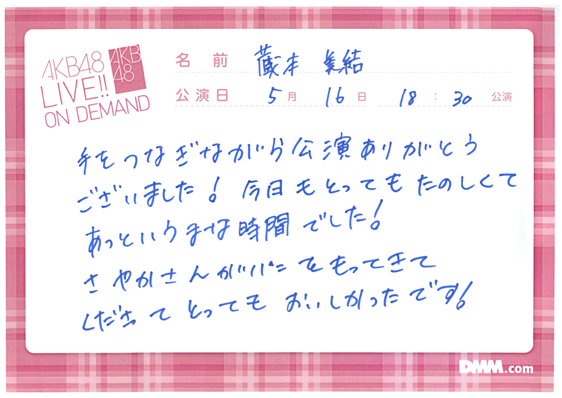 AKB48
LIVE!!
ON DEMAND
AKB
48
名前 蔵本 美結
公演日 5月 16日 18:30 公演
手をつなぎながら公演ありがとう
ございました! 今日もとってもたのしくて
あっというまな時間でした!
さやかさんがパンをもってきて
くださってとってもおいしかったです!
DMM.com